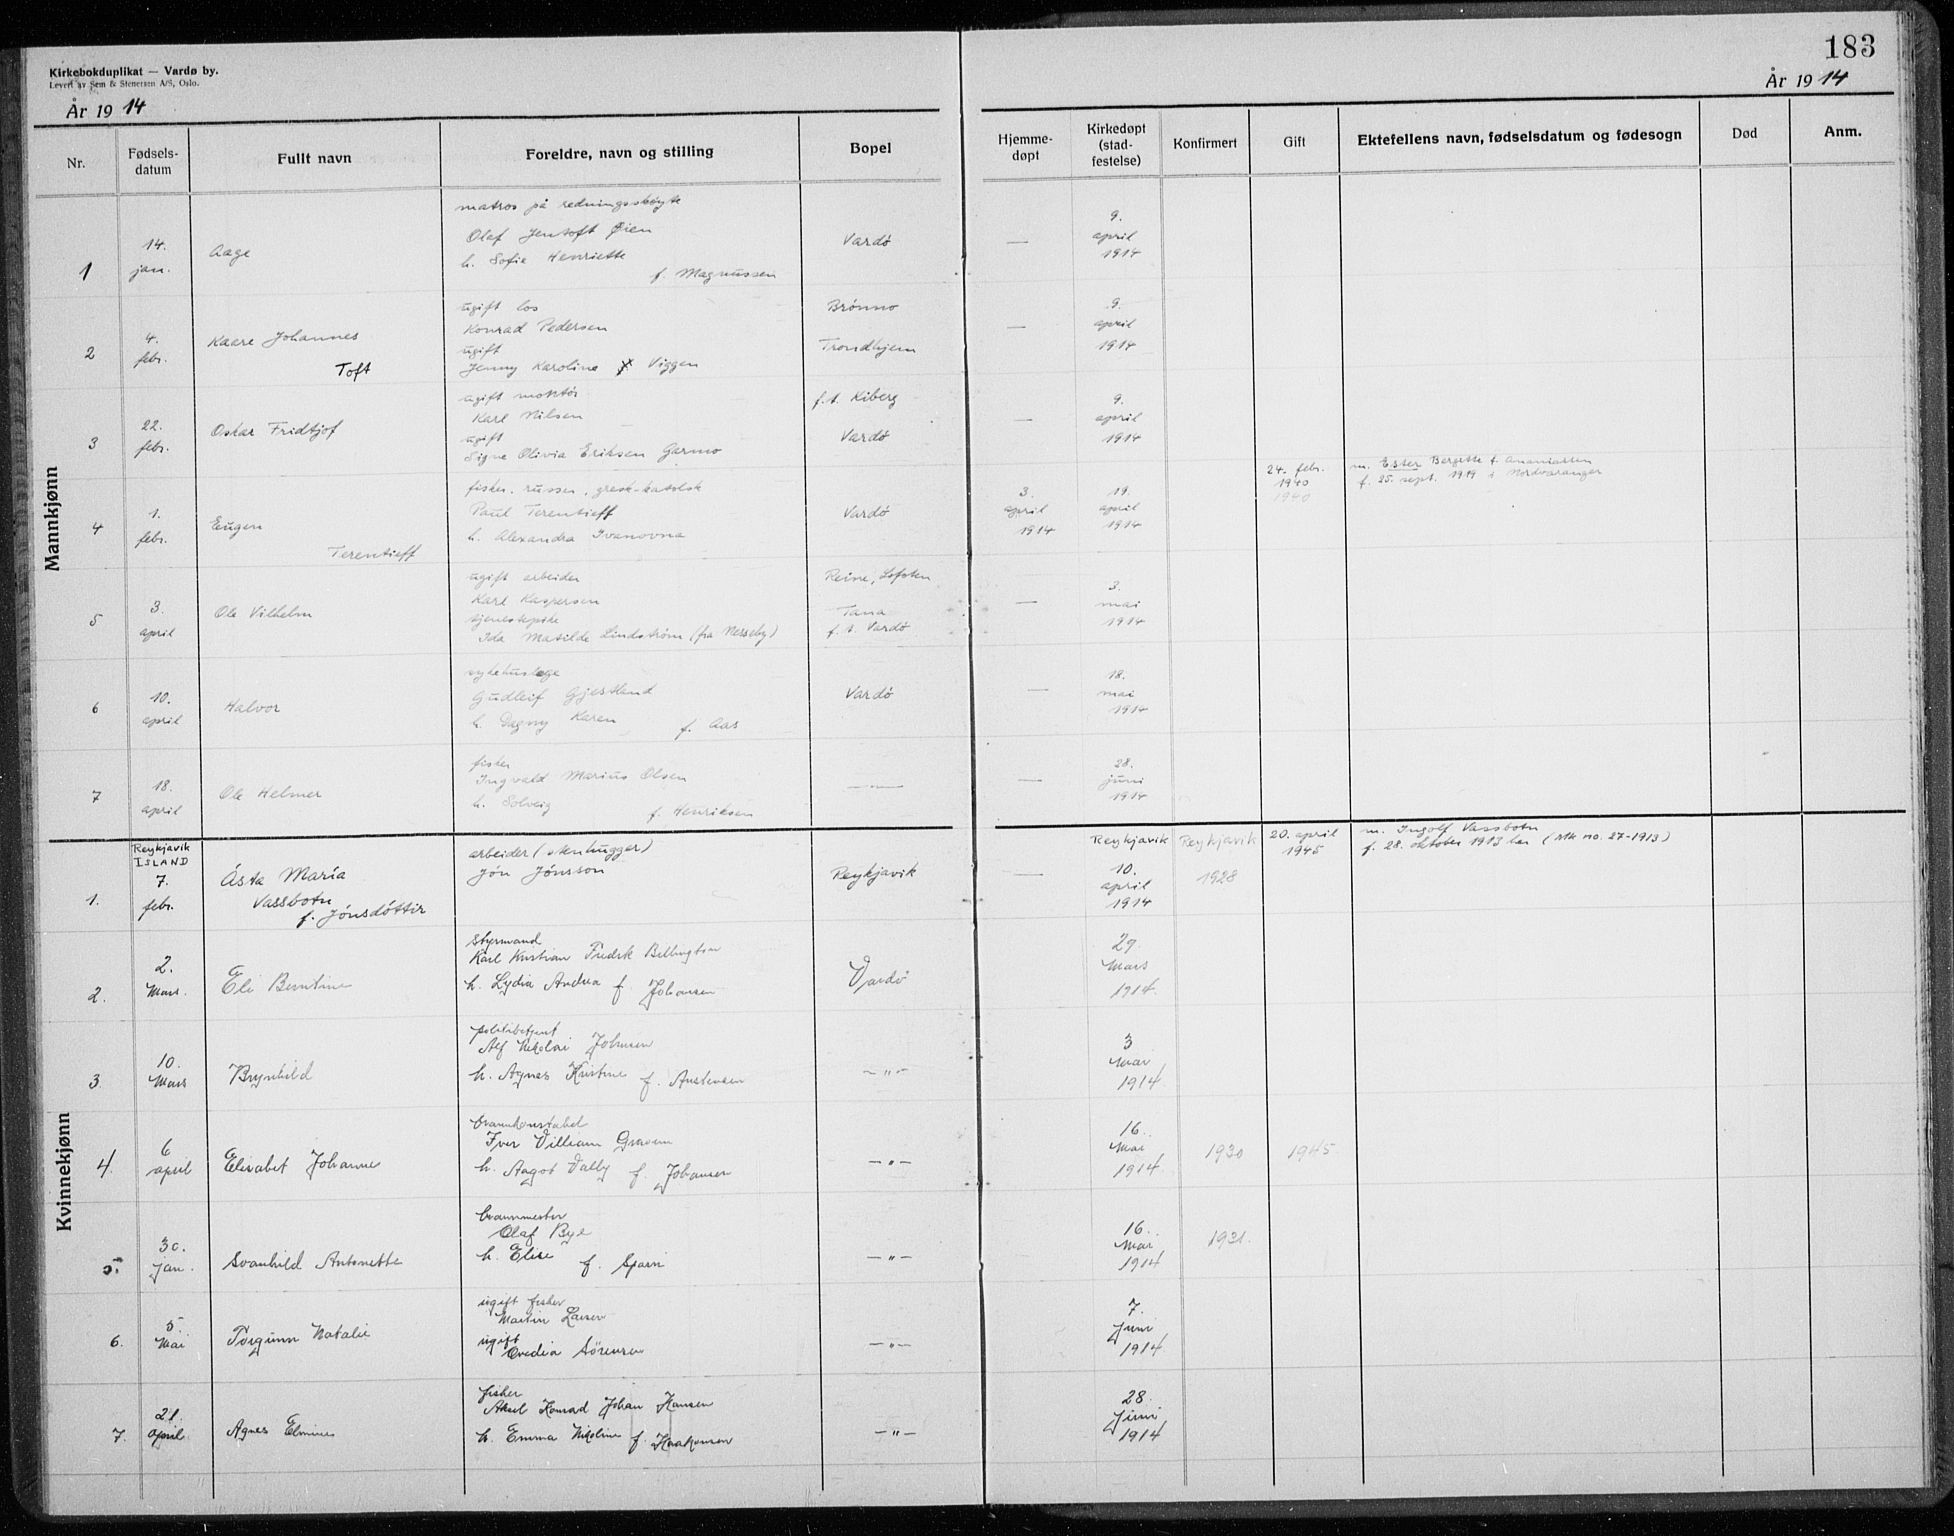 183
Kirkebokduplikat — Vardø by.
Levert av Sem & Stenersen A/S, Oslo.
År 1914
År 1914
Nr.
Fødsels-
datum
Fullt navn
Foreldre, navn og stilling
Bopel
Hjemme-
døpt
Kirkedøpt
(stad-
festelse)
Konfirmert
Gift
Ektefellens navn, fødselsdatum og fødesogn
Død
Anm.
Mannkjønn
1
14.
jan.
Aage
matros på redningsskøyte
Olaf Jentoft Øien
h. Sofie Henriette
f. Magnussen
Vardø
—
9.
april
1914
2
4.
febr.
Kaare Johannes
Toft
ugift los
Konrad Pedersen
ugift
Jenny Karoline Viggen
Brønnø
Trondhjem
—
9.
april
1914
3
22.
febr.
Oskar Fridtjof
ugift
Karl Nilsen
ugift
Signe Olivia Eriksen Garmo
f.t. Kiberg
Vardø
—
9.
april
1914
4
1.
febr.
Eugen
Terentieff
fisker, russen, gresk-katolsk
Paul Terentieff
h. Alexandra Ivanovna
Vardø
3.
april
1914
19.
april
1914
24. febr.
1940
1940
m. Ester Bergitte f. Ananiassen
f. 25. sept. 1919 i Nordvaranger
5
3.
april
Ole Vilhelm
ugift arbeider
Karl Kaspersen
tjenestepike
Ida Matilde Lindstrøm (fra Nesseby)
Reine, Lofoten
Tana
f.t. Vardø
—
3.
mai
1914
6
10.
april
Halvor
sykehuslege
Gudleif Gjestland
h. Dagny Karen
f. Aas
Vardø
—
18.
mai
1914
7
18.
april
Ole Helmer
fisker
Ingvald Marius Olsen
h. Solveig
f. Henriksen
—
28.
juni
1914
Kvinnekjønn
1.
Reykjavik
ISLAND
7.
febr.
Ásta María
Vassbotn
f. Jónsdóttir
arbeider (stenhugger)
Jón Jónsson
Reykjavik
—
Reykjavik
10.
april
1914
Reykjavik
1928
20. april
1945
m. Ingolf Vassbotn
f. 28. oktober 1913 her (Mk no. 27-1913)
2.
2.
Mars.
Eli Berntine
Styrmand
Karl Kristian Fredrk Bellington
h. Lydia Andrea f. Johansen
Vardø
29.
Mars
1914.
3.
10.
Mars
Brynhild
politibetjent
Alf Nikolai Johnsen
h. Agnes Kristine f. Austensen
— " —
3
Mai
1914
4.
6
april
Elisabet Johanne
brannkonstabel
Iver Villiam
h. Aagot Valby f. Johansen
— " —
16.
Mai
1914
1930
1945
5.
30.
jan.
Svanhild Antonette
brannmester
Olaf Bye
h. Elise f.
— " —
16.
Mai
1914
1931.
6.
5
Mai
Torgunn Natalie
ugift fisker
Martin Larsen
ugift
Ovedia Sørensen
— " —
7.
Juni
1914
7.
21.
april
Agnes
fisker
Aksel Konrad Johan Hansen
h. Emma Nikoline f. Haakonsen
— " —
28.
Juni
1914